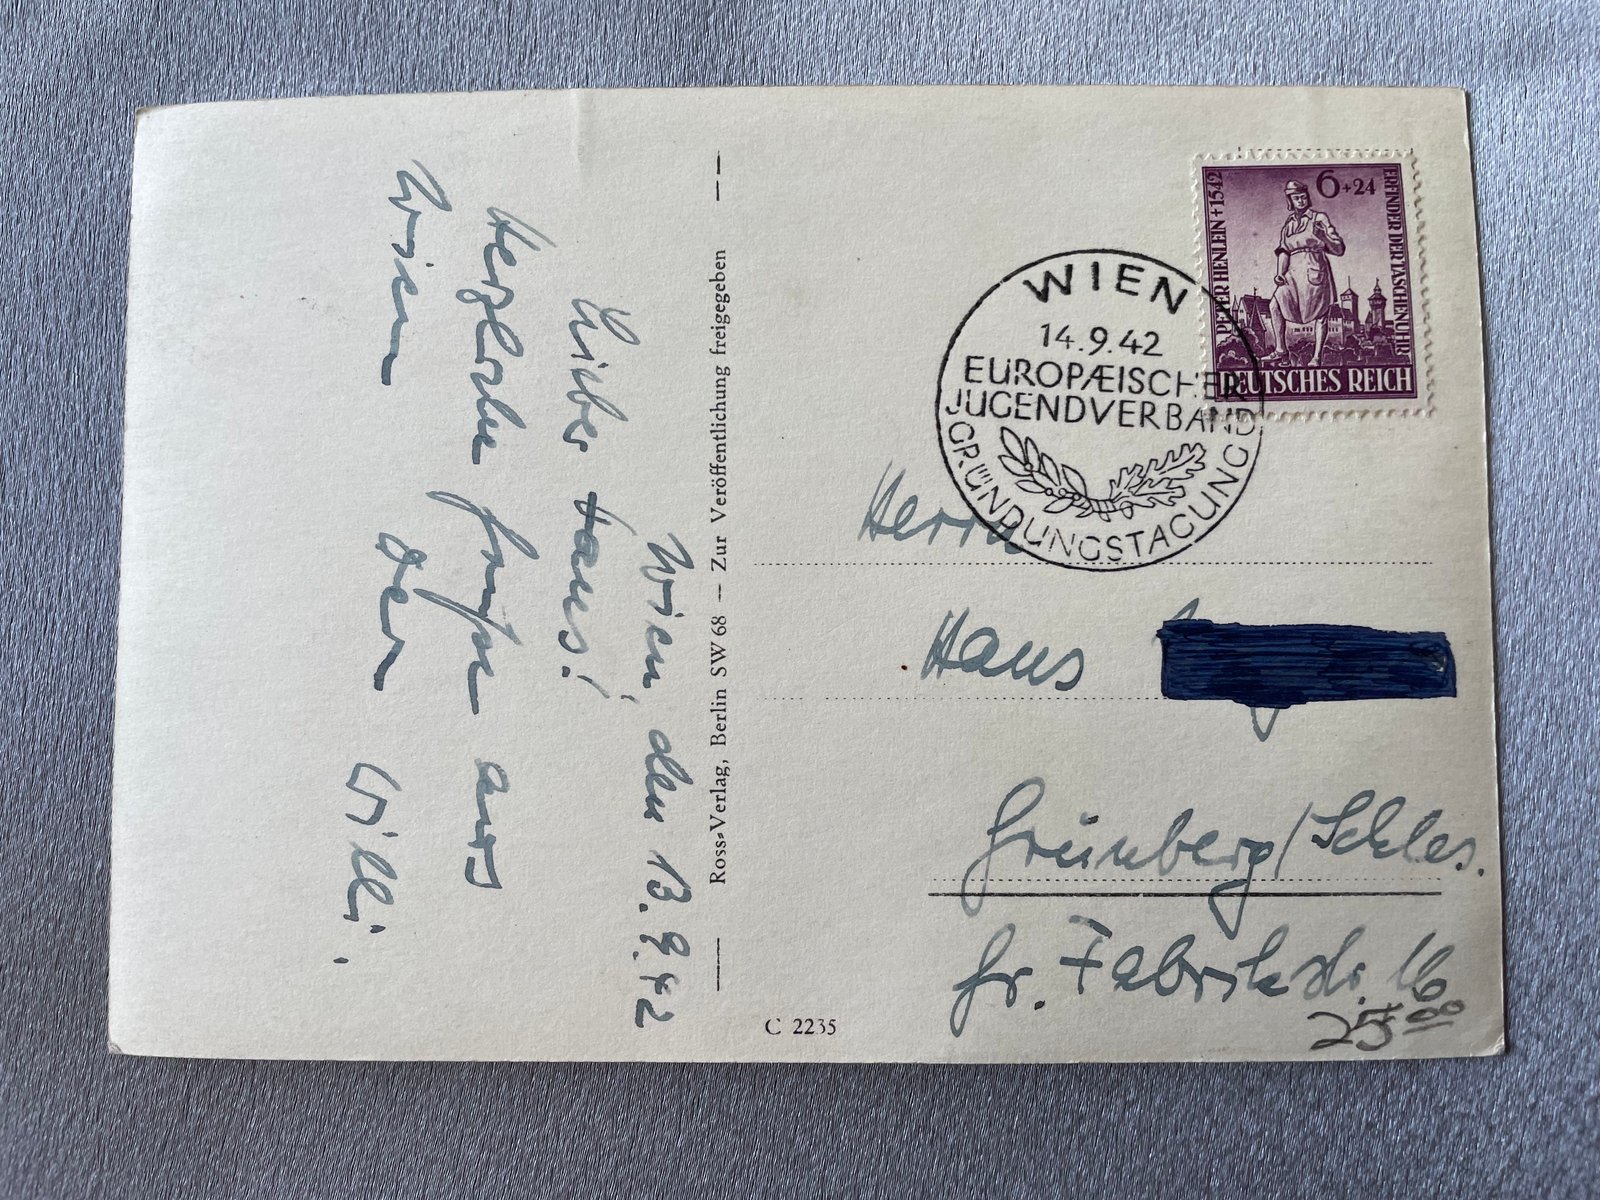 Wien, den 13.9.42
Lieber Hans!
Herzliche Grüße aus
Wien
Der Willi.
Ross-Verlag, Berlin SW 68 — Zur Veröffentlichung freigegeben
C 2235
PETER HENLEIN + 1542
6+24
ERFINDER DER TASCHENUHR
DEUTSCHES REICH
WIEN
14.9.42
EUROPÆISCHER
JUGENDVERBAND
GRÜNDUNGSTAGUNG
Herrn
Hans
Grünberg/Schles.
Gr. Fabrikstr. 16
25.00